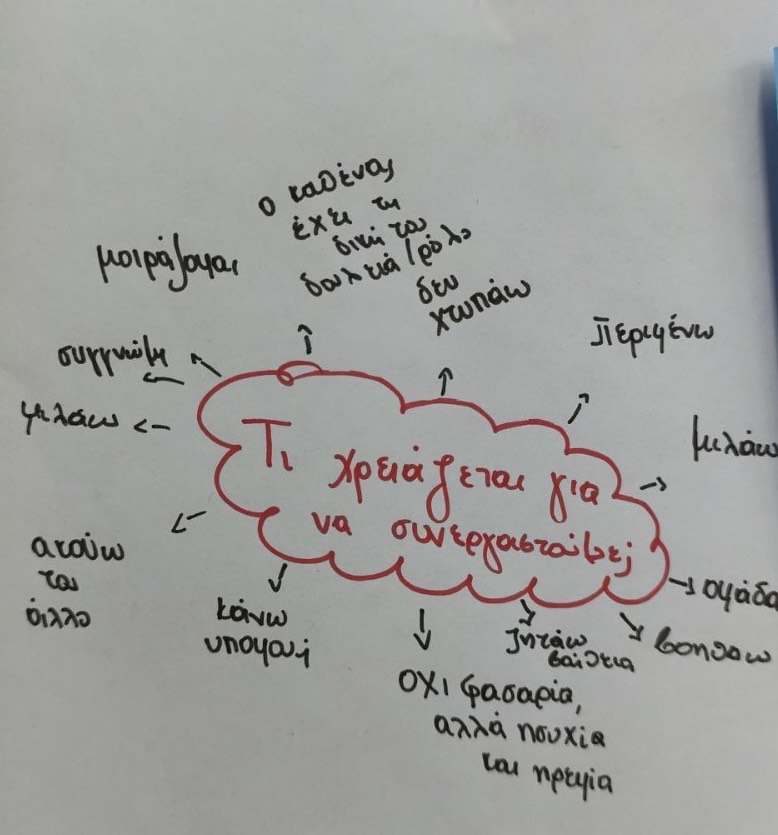 ο καθένας
έχει τη
δική του
δουλειά/ρόλο
μοιράζομαι
δεν
χτυπάω
περιμένω
συγγνώμη
μιλάω
μιλάω
Τι χρειάζεται για
να συνεργαστούμε;
ακούω
τον
άλλο
κάνω
υπομονή
ομάδα
βοηθάω
ζητάω
βοήθεια
ΟΧΙ φασαρία,
αλλά ησυχία
και ηρεμία